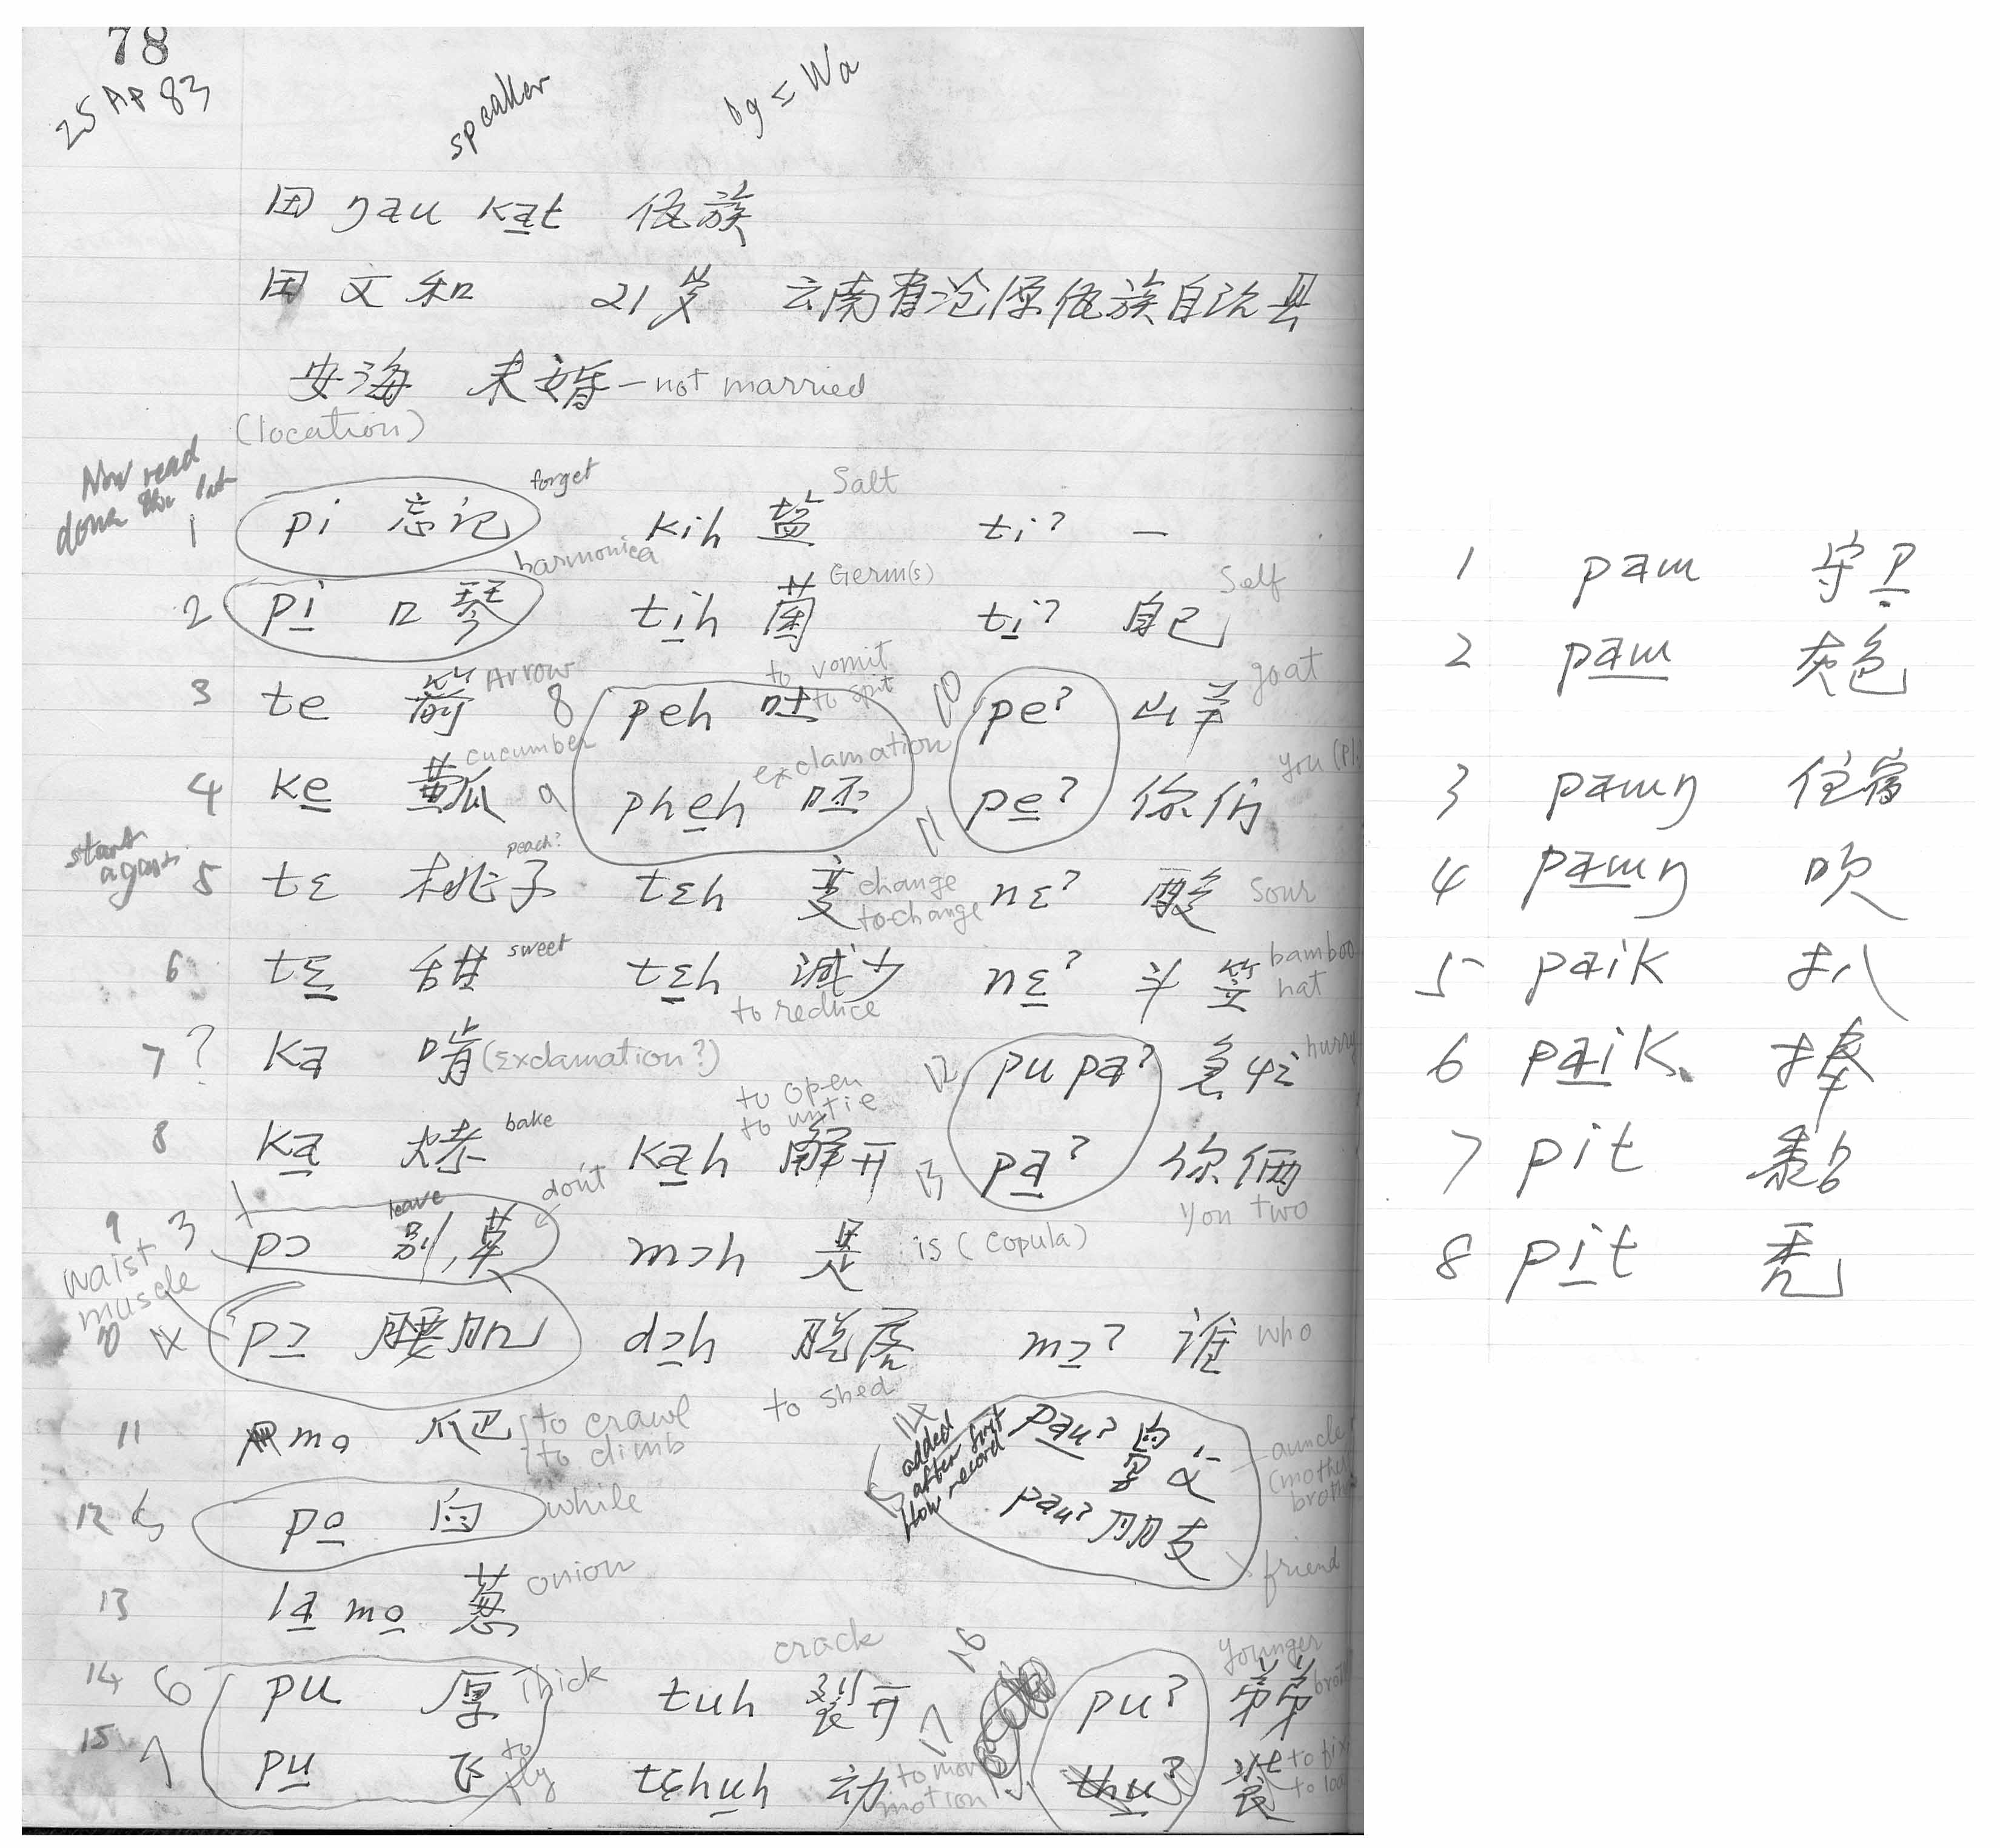 78
25 Ap 83
speaker
bg = Wa
田 ŋau ka̲t 佤族
田文和 21岁 云南省沧源佤族自治县
安海 未婚 — not married
(location)
Now read down the list
1 pi 忘记 forget kih 盐 Salt tiʔ —
2 pi̲ 口琴 harmonica ti̲h 菌 Germ(s) ti̲ʔ 自己 Self
3 te 箭 Arrow 8 peh 吐 to vomit to spit 10 peʔ 山羊 goat
4 ke̲ 黄瓜 cucumber 9 phe̲h 呸 exclamation 11 pe̲ʔ 你们 you (pl.
start again
5 tɛ 桃子 peach? tɛh 变 change to change nɛʔ 酸 Sour
6 tɛ̲ 甜 sweet tɛ̲h 减少 to reduce nɛ̲ʔ 斗笠 bamboo hat
7 ? ka 啃 (Exclamation?) 12 pu paʔ 急忙 hurry
8 ka̲ 烤 bake ka̲h 解开 to open to untie 13 pa̲ʔ 你俩 you two
9 3 pɔ 别,草 leave don't mɔh 是 is (copula)
10 4 pɔ̲ 腰肌 waist muscle dɔ̲h 脱落 to shed mɔ̲ʔ 谁 who
11 mo 爬 to crawl to climb
added after first flow record
pa̲uʔ 舅父 auncle (mother brother
pauʔ 朋友 friend
12 5 po̲ 向 while
13 la̲ mo̲ 葱 onion
14 6 pu 厚 Thick tuh 裂开 crack 16 puʔ 弟弟 younger brot
15 7 pu̲ 飞 to fly tɕhu̲h 动 to move motion 17 thu̲ʔ to fix to loa
1 pam 守卫
2 pa̲m 灰色
3 paɯŋ 住宿
4 pa̲ɯŋ 吹
5 paik 扒
6 pa̲ik 捧
7 pit 黏
8 pi̲t 秃